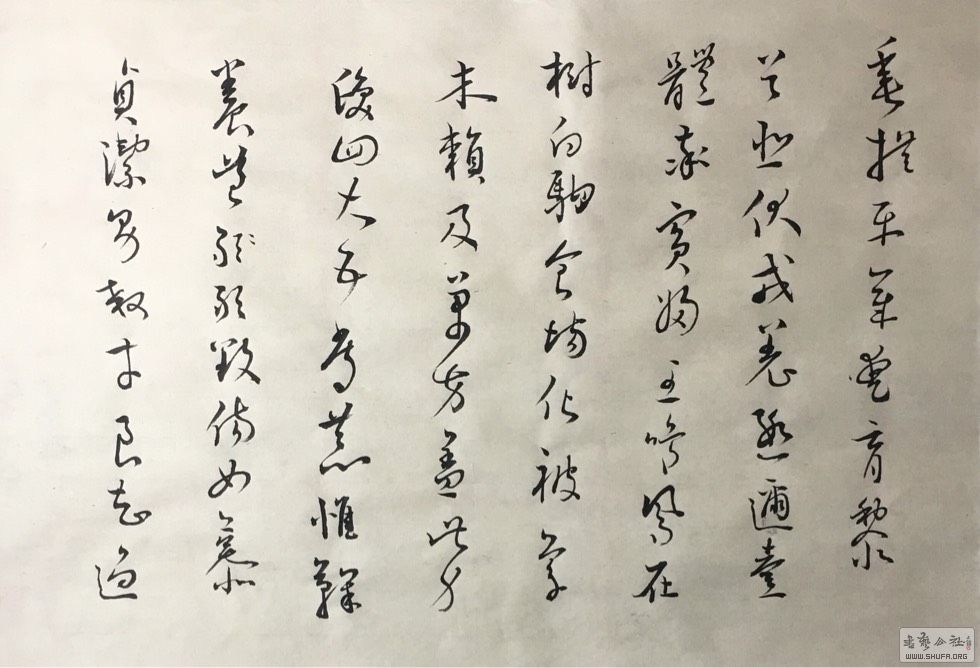 垂拱平章愛育黎
首臣伏戎羌遐邇壹
體率賓歸王鳴鳳在
樹白駒食場化被草
木賴及萬方蓋此身
髮四大五常恭惟鞠
養豈敢敢毀傷女慕
貞潔男效才良知過
書藝公社
WWW.SHUFA.ORG